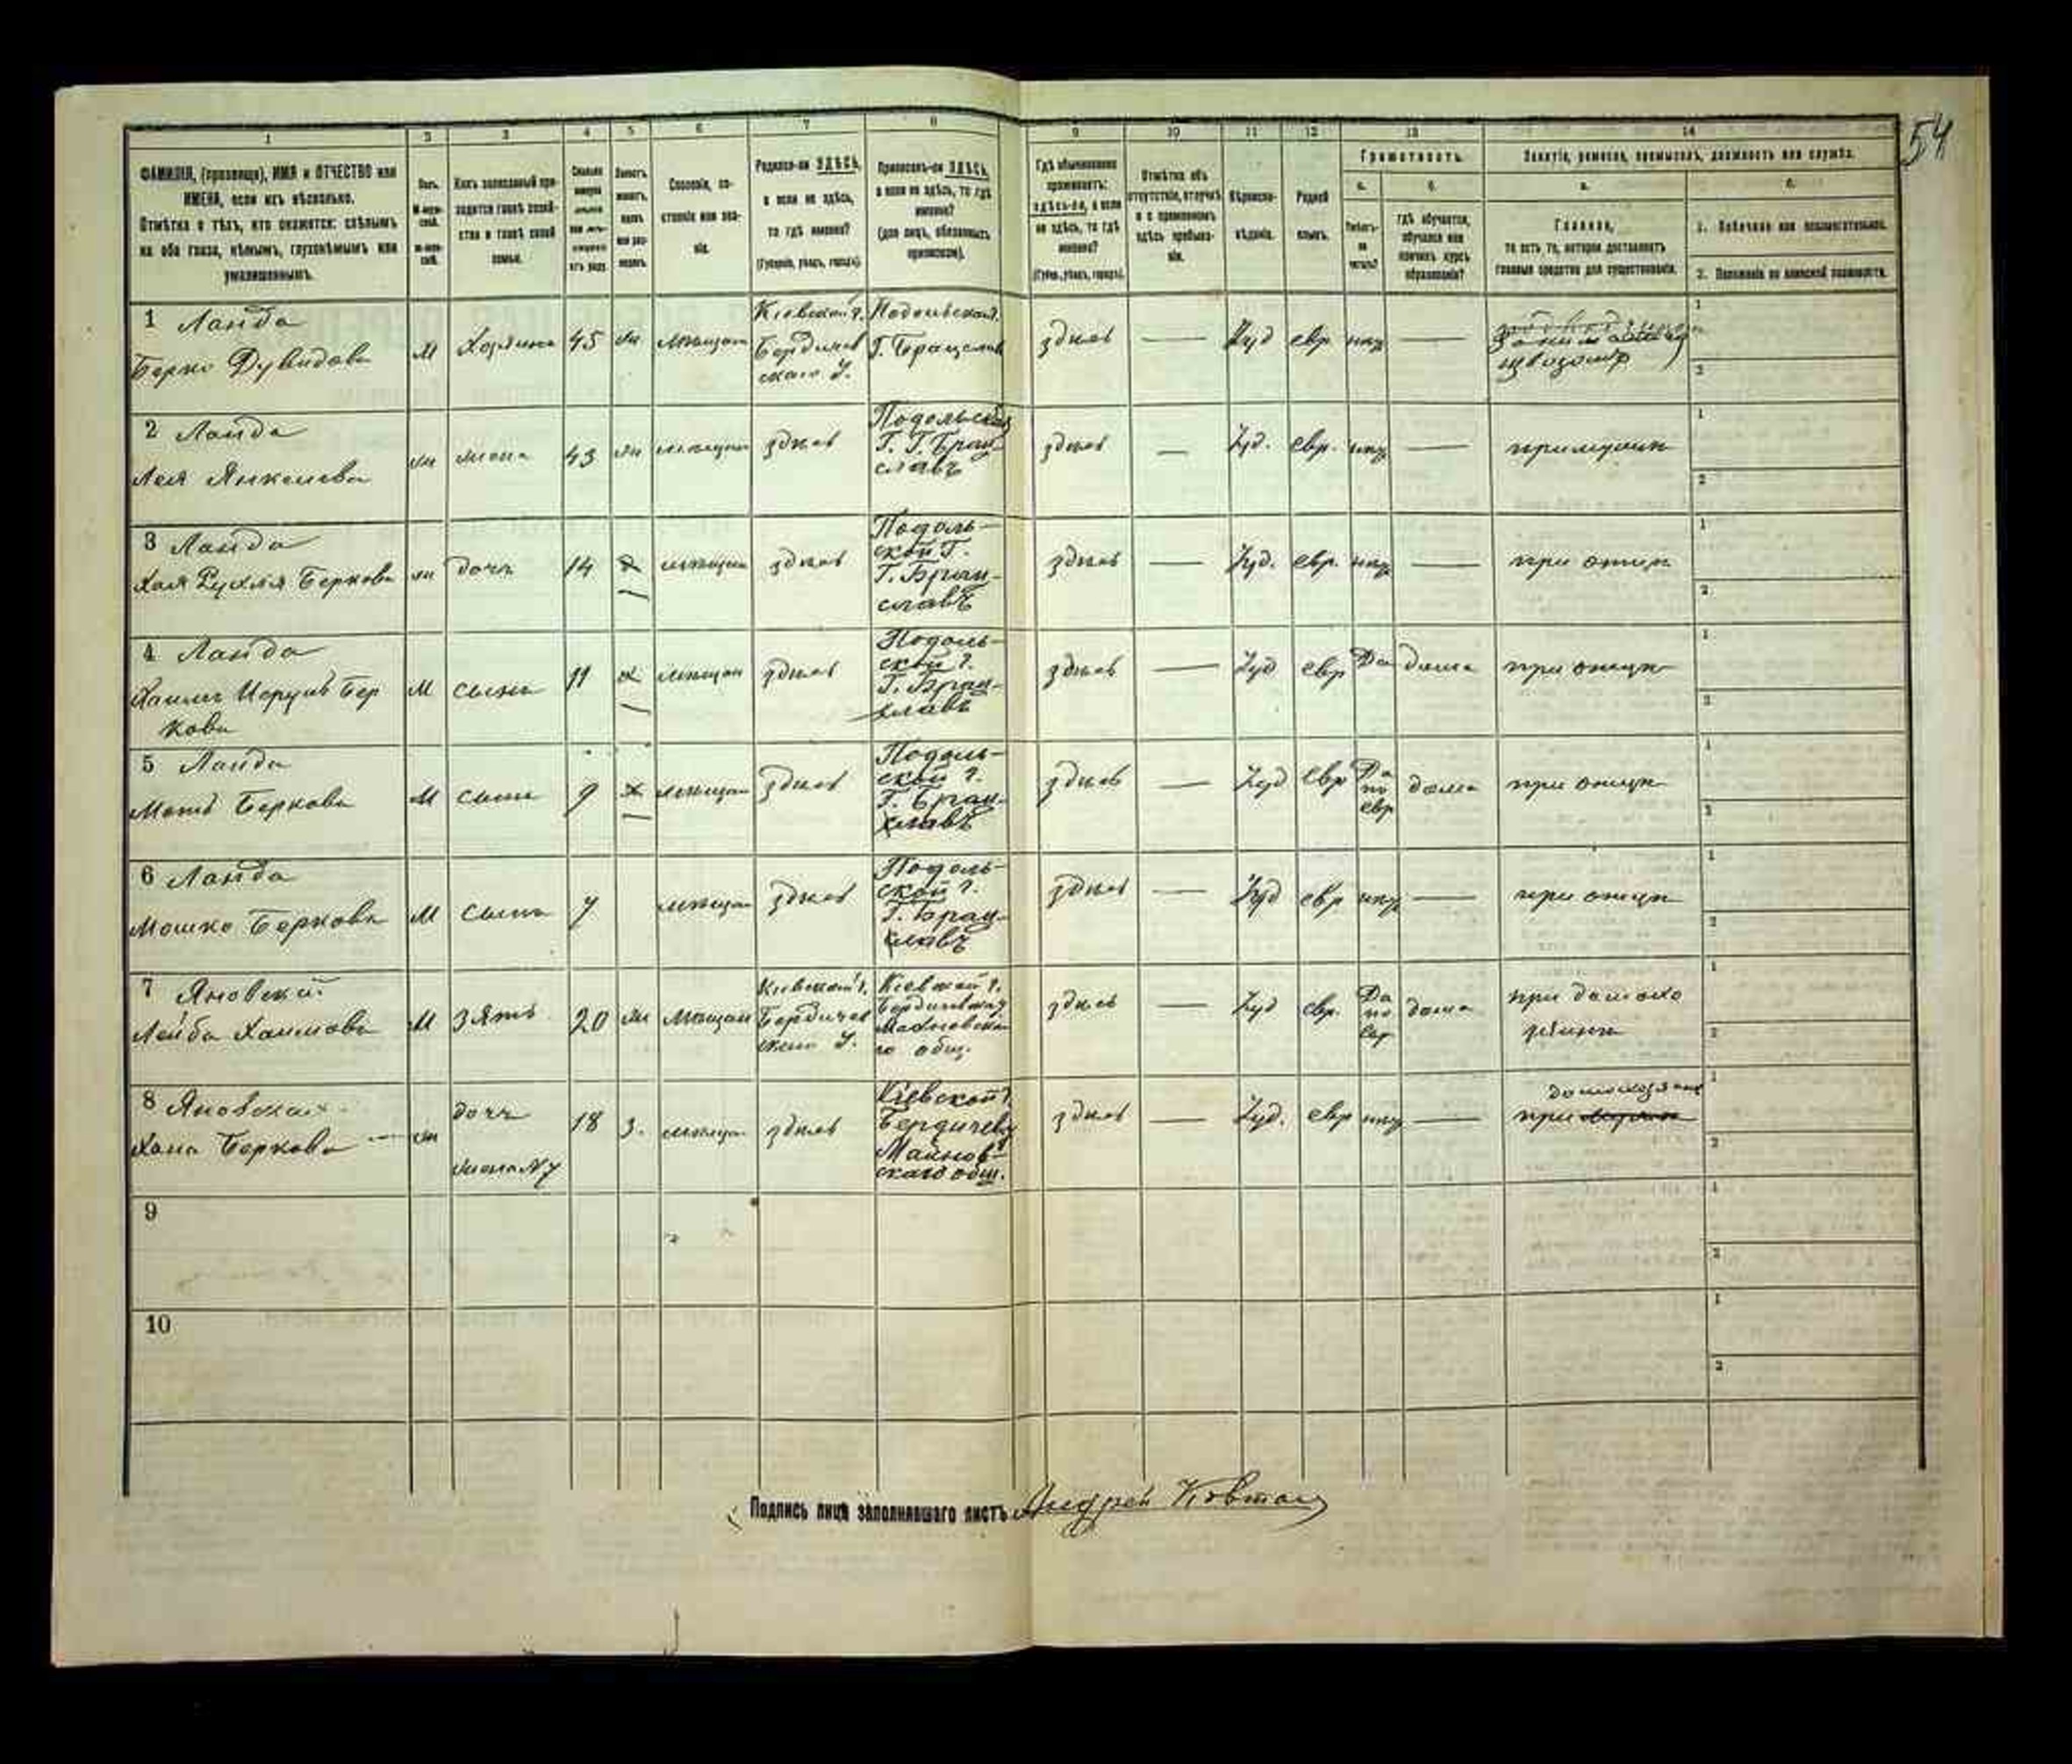 54
1 2 3 4 5 6 7 8 9 10 11 12 13 14
ФАМИЛІЯ, (прозвище), ИМЯ и ОТЧЕСТВО или
ИМЕНА, если ихъ нѣсколько.
Отмѣтка о тѣхъ, кто окажется: слѣпымъ
на оба глаза, нѣмымъ, глухонѣмымъ или
умалишеннымъ.
Полъ.
Какъ записанный при-
ходится главѣ хозяй-
ства и главѣ своей
семьи.
Сословіе, со-
стояніе или зва-
ніе.
Родился-ли ЗДѢСЬ,
а если не здѣсь,
то гдѣ именно?
(Губернія, уѣздъ, городъ).
Приписанъ-ли ЗДѢСЬ,
а если не здѣсь, то гдѣ
именно?
(для лицъ, обязанныхъ
припискою).
Гдѣ обыкновенно
проживаетъ:
здѣсь-ли, а если
не здѣсь, то гдѣ
именно?
(Губер., уѣздъ, городъ).
Отмѣтка объ
отсутствіи, отлучкѣ
и о временномъ
здѣсь пребыва-
ніи.
Вѣроиспо-
вѣданіе.
Родной
языкъ.
Грамотность.
а. б.
Умѣетъ-
ли
читать?
гдѣ обучается,
обучался или
кончилъ курсъ
образованія?
Занятіе, ремесло, промыселъ, должность или служба.
а. б.
Главное,
то есть то, которое доставляетъ
главныя средства для существованія.
1. Побочное или вспомогательное.
2. Положеніе по воинской повинности.
1 Ланда
Берко Дувидовъ
М Хозяинъ 45 жн мѣщан
Кіевской г.
Бердичев
скаго У.
Подольской г.
Г. Брацлавъ
здѣсь — Іуд евр нѣт —
извозомъ
2 Ланда
Лея Янкелева
жн жена 43 жн мѣщан здѣсь
Подольской
Г. Г. Брац-
славъ
здѣсь — Іуд. евр. нѣт — при мужѣ
3 Ланда
Хая Рухля Беркова
жн дочь 14 мѣщан здѣсь
Подоль-
ской Г.
Г. Брац-
славъ
здѣсь — Іуд. евр. нѣт — при отцѣ
4 Ланда
Берковъ
М сынъ 11 мѣщан здѣсь
Подоль-
ской г.
Г. Брац-
славъ
здѣсь — Іуд евр Да дома при отцѣ
5 Ланда
Берковъ
М сынъ 9 мѣщан здѣсь
Подоль-
ской г.
Г. Брац-
славъ
здѣсь — Іуд евр Да
по
евр
дома при отцѣ
6 Ланда
Мошко Берковъ
М сынъ 7 мѣщан здѣсь
Подоль-
ской г.
Г. Брац-
славъ
здѣсь — Іуд евр нѣт — при отцѣ
7 Яновскій
Лейба Хаимовъ
М Зять 20 жн мѣщан
Кіевской г.
Бердичев
скаго У.
Кіевской г.
Махновска
го общ.
здѣсь — Іуд евр. Да
по
евр
дома при домохо
зяинѣ
8 Яновская
Хана Беркова
жн дочь
жена №7
18 З. мѣщан здѣсь
Кіевской г.
Бердичев у
Махнов-
скаго общ.
здѣсь — Іуд. евр нѣт —
при
9
10
Подпись лица заполнявшаго листъ Андрей Ковтан